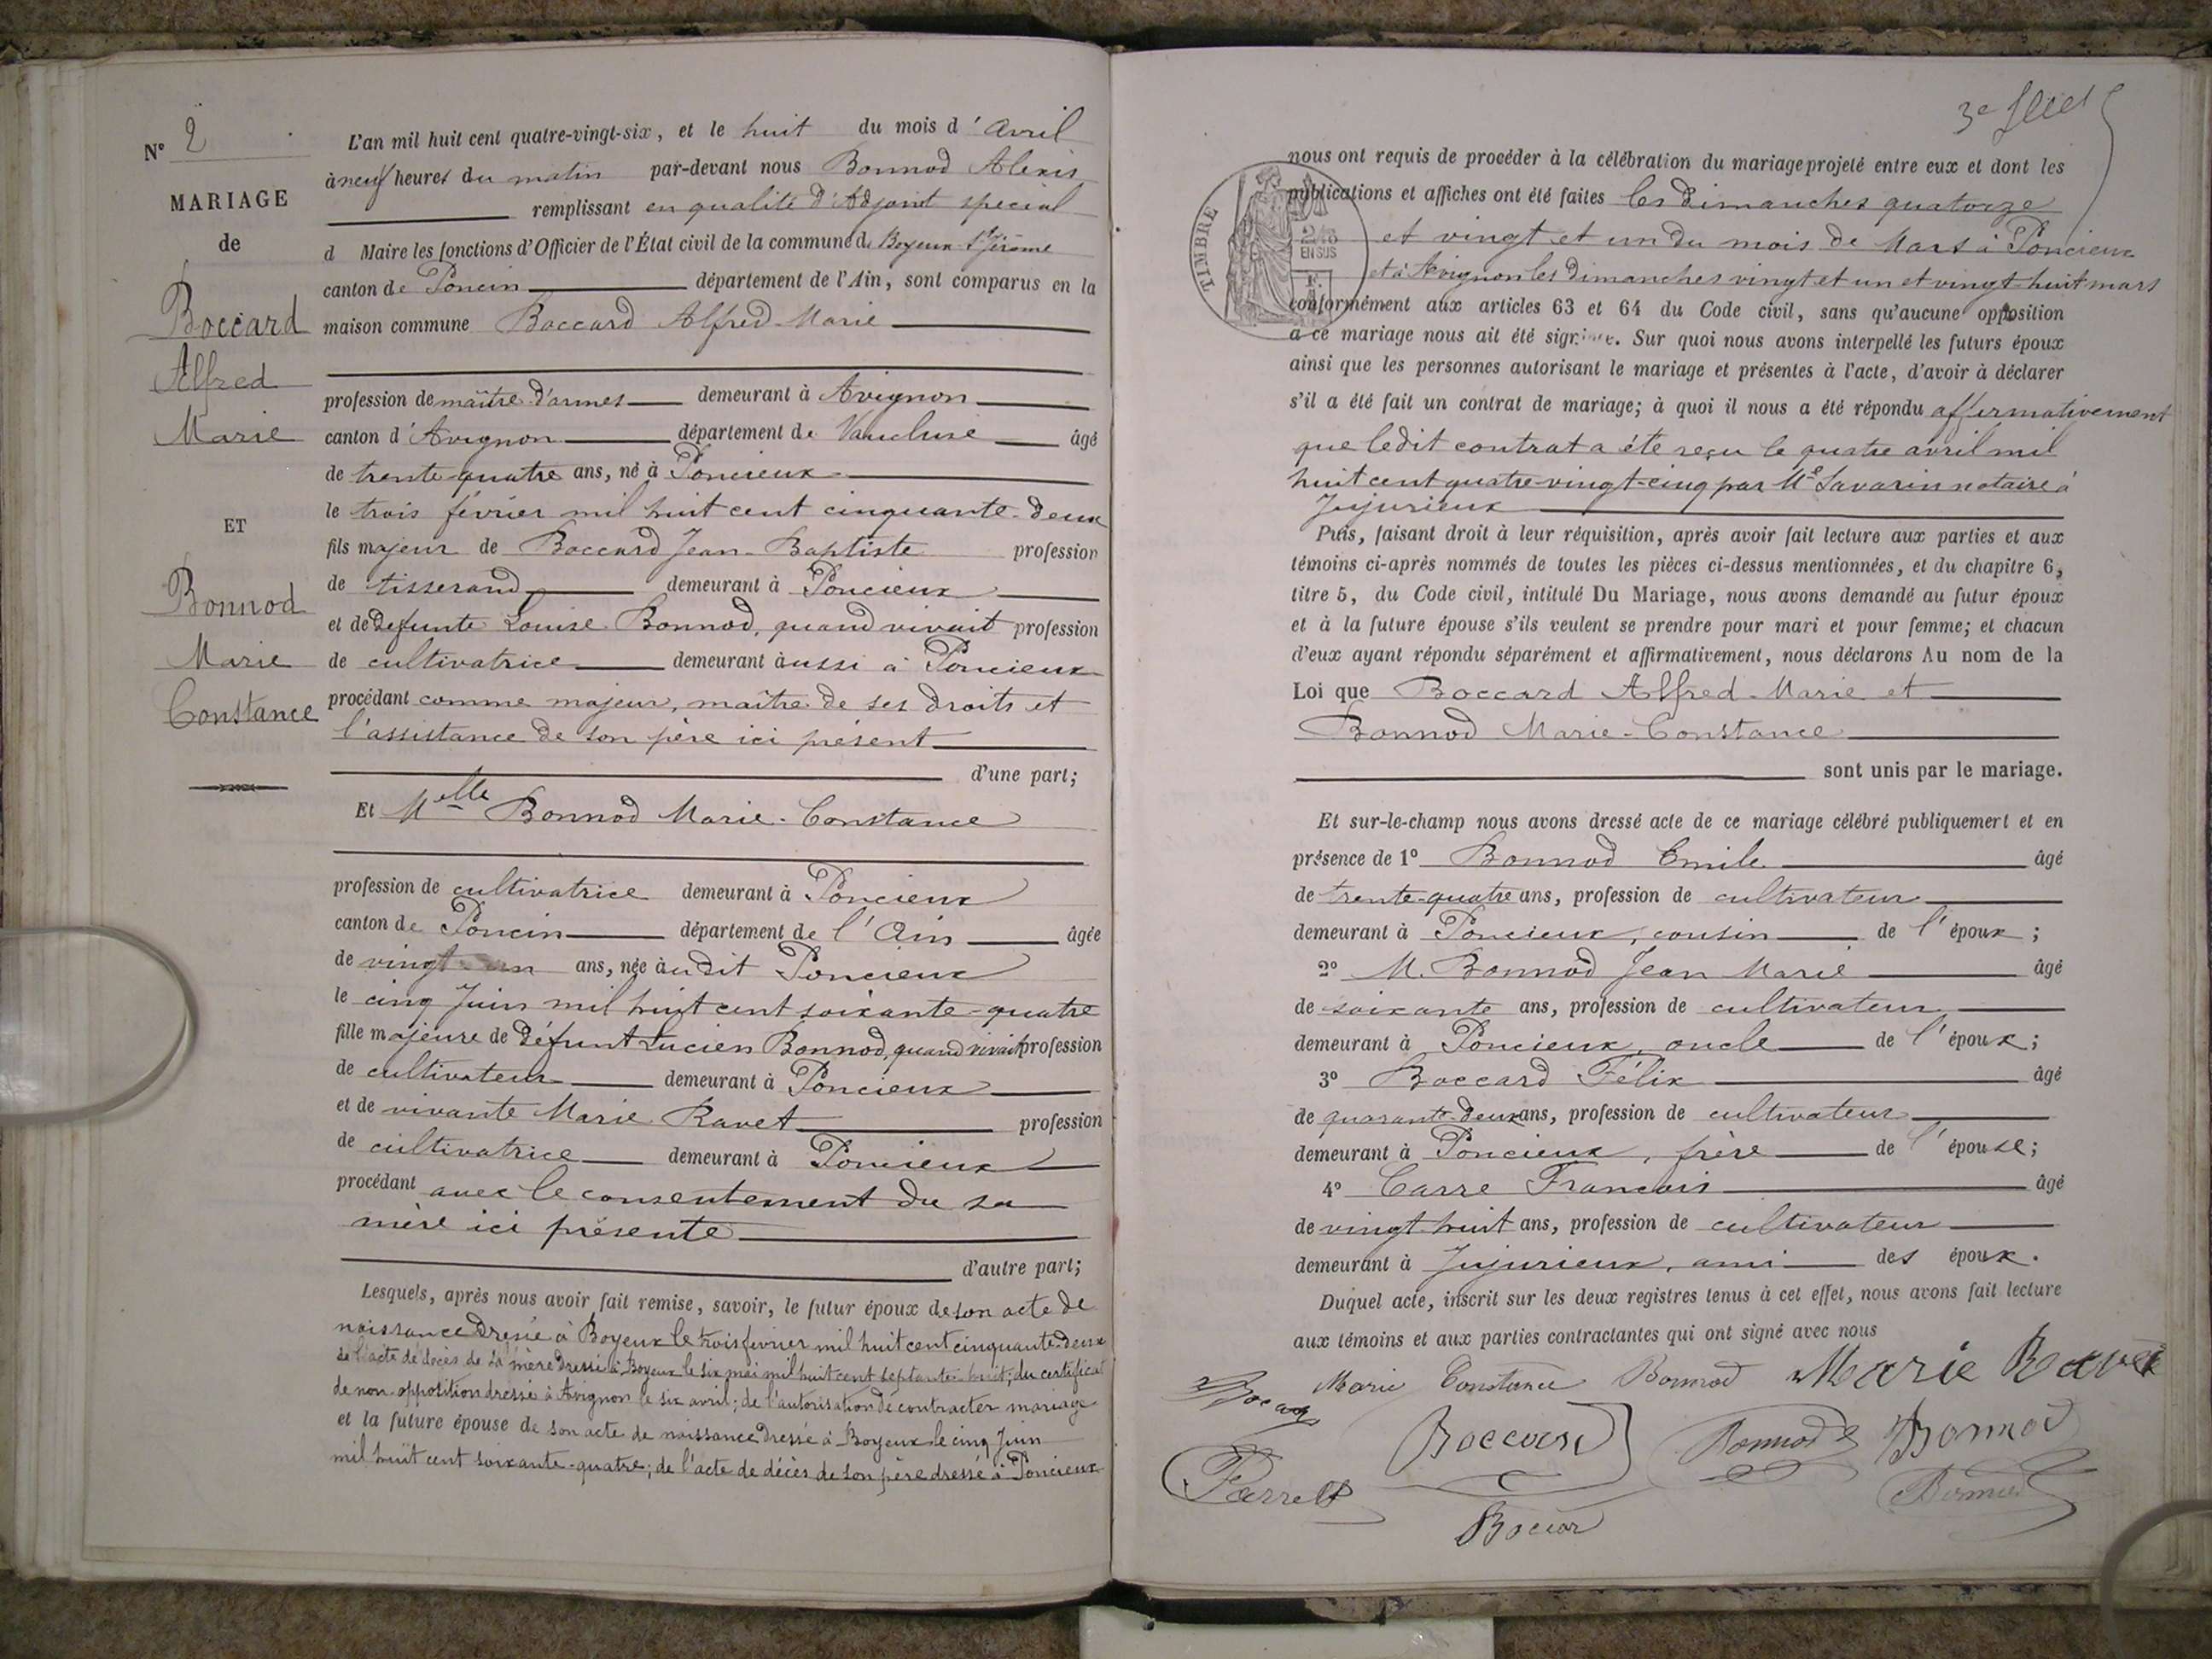 N° 2
MARIAGE
de
Boccard
Alfred
Marie
ET
Bonnod
Marie
Constance
L'an mil huit cent quatre-vingt-six, et le huit du mois d'Avril
à neuf heures du matin par-devant nous Bonnod Alexis
remplissant en qualité d'Adjoint spécial
d Maire les fonctions d'Officier de l'État civil de la commune de Boyeux-St Jérôme
canton de Poncin département de l'Ain, sont comparus en la
maison commune Boccard Alfred-Marie
profession de maître d'armes demeurant à Avignon
canton d'Avignon département de Vaucluse âgé
de trente-quatre ans, né à Poncieux
le trois février mil huit cent cinquante-deux
fils majeur de Boccard Jean-Baptiste profession
de tisserand demeurant à Poncieux
et de défunte Louise Bonnod, quand vivait profession
de cultivatrice demeurant àussi à Poncieux
procédant comme majeur, maître de ses droits et
l'assistance de son père ici présent
d'une part;
Et Melle Bonnod Marie-Constance
profession de cultivatrice demeurant à Poncieux
canton de Poncin département de l'Ain âgée
de vingt-un ans, née àudit Poncieux
le cinq Juin mil huit cent soixante-quatre
fille majeure de défunt Lucien Bonnod, quand vivait profession
de cultivateur demeurant à Poncieux
et de vivante Marie Ravet profession
de cultivatrice demeurant à Poncieux
procédant avec le consentement du sa
mère ici présente
d'autre part;
Lesquels, après nous avoir fait remise, savoir, le futur époux de son acte de
naissance dressé à Boyeux le trois février mil huit cent cinquante-deux
de l'acte de décès de sa mère dressé à Boyeux le six mai mil huit cent septante-huit; du certificat
de non-opposition dressé à Avignon le six avril; de l'autorisation de contracter mariage
et la future épouse de son acte de naissance dressé à Boyeux le cinq Juin
mil huit cent soixante-quatre; de l'acte de décès de son père dressé à Poncieux
3e
TIMBRE
EN SUS
nous ont requis de procéder à la célébration du mariage projeté entre eux et dont les
publications et affiches ont été faites les dimanches quatorze
et vingt et un du mois de Mars à Poncieux
et à Avignon les dimanches vingt et un et vingt-huit mars
conformément aux articles 63 et 64 du Code civil, sans qu'aucune opposition
a ce mariage nous ait été signifiée. Sur quoi nous avons interpellé les futurs époux
ainsi que les personnes autorisant le mariage et présentes à l'acte, d'avoir à déclarer
s'il a été fait un contrat de mariage; à quoi il nous a été répondu affirmativement
que ledit contrat a été reçu le quatre avril mil
huit cent quatre-vingt-cinq par Me Savarin notaire à
Jujurieux
Puis, faisant droit à leur réquisition, après avoir fait lecture aux parties et aux
témoins ci-après nommés de toutes les pièces ci-dessus mentionnées, et du chapitre 6,
titre 5, du Code civil, intitulé Du Mariage, nous avons demandé au futur époux
et à la future épouse s'ils veulent se prendre pour mari et pour femme; et chacun
d'eux ayant répondu séparément et affirmativement, nous déclarons Au nom de la
Loi que Boccard Alfred-Marie et
Bonnod Marie-Constance
sont unis par le mariage.
Et sur-le-champ nous avons dressé acte de ce mariage célébré publiquement et en
présence de 1° Bonnod Emile âgé
de trente-quatre ans, profession de cultivateur
demeurant à Poncieux, cousin de l'époux;
2° M. Bonnod Jean Marie âgé
de soixante ans, profession de cultivateur
demeurant à Poncieux, oncle de l'époux;
3° Boccard Félix âgé
de quarante-deux ans, profession de cultivateur
demeurant à Poncieux, frère de l'épouse;
4° Carre Francois âgé
de vingt-huit ans, profession de cultivateur
demeurant à Jujurieux, ami des époux.
Duquel acte, inscrit sur les deux registres tenus à cet effet, nous avons fait lecture
aux témoins et aux parties contractantes qui ont signé avec nous
Marie Constance Bonnod Marie Ravet
Boccard Bonnod Bonnod
Bonnod